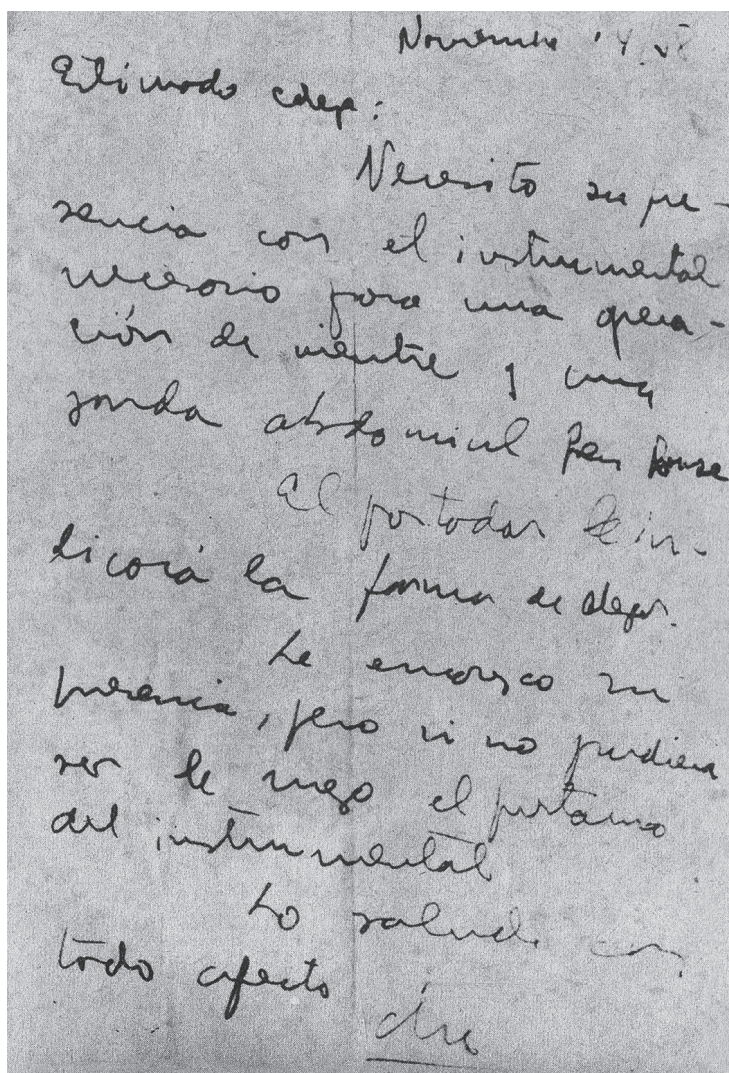 Noviembre 14.58
Estimado colega:
Necesito su pre-
sencia con el instrumental
necesario para una opera-
ción de vientre y una
sonda abdominal
El portador le in-
dicará la forma de llegar.
Le encarezco su
presencia, pero si no pudiera
ser le ruego el préstamo
del instrumental
Lo saluda con
todo afecto
che